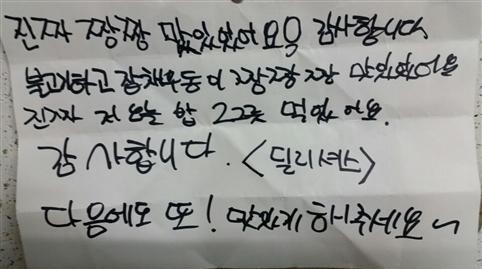 진짜 짱짱 맜있었어요욕 감사합니다
불고기하고 잡채우동이 짱짱짱 맛있었어요
진짜 저 오늘 밥 2그릇 먹었어요.
감사합니다. <딜리셔스>
다음에도 또! 맛있게 해주세요~